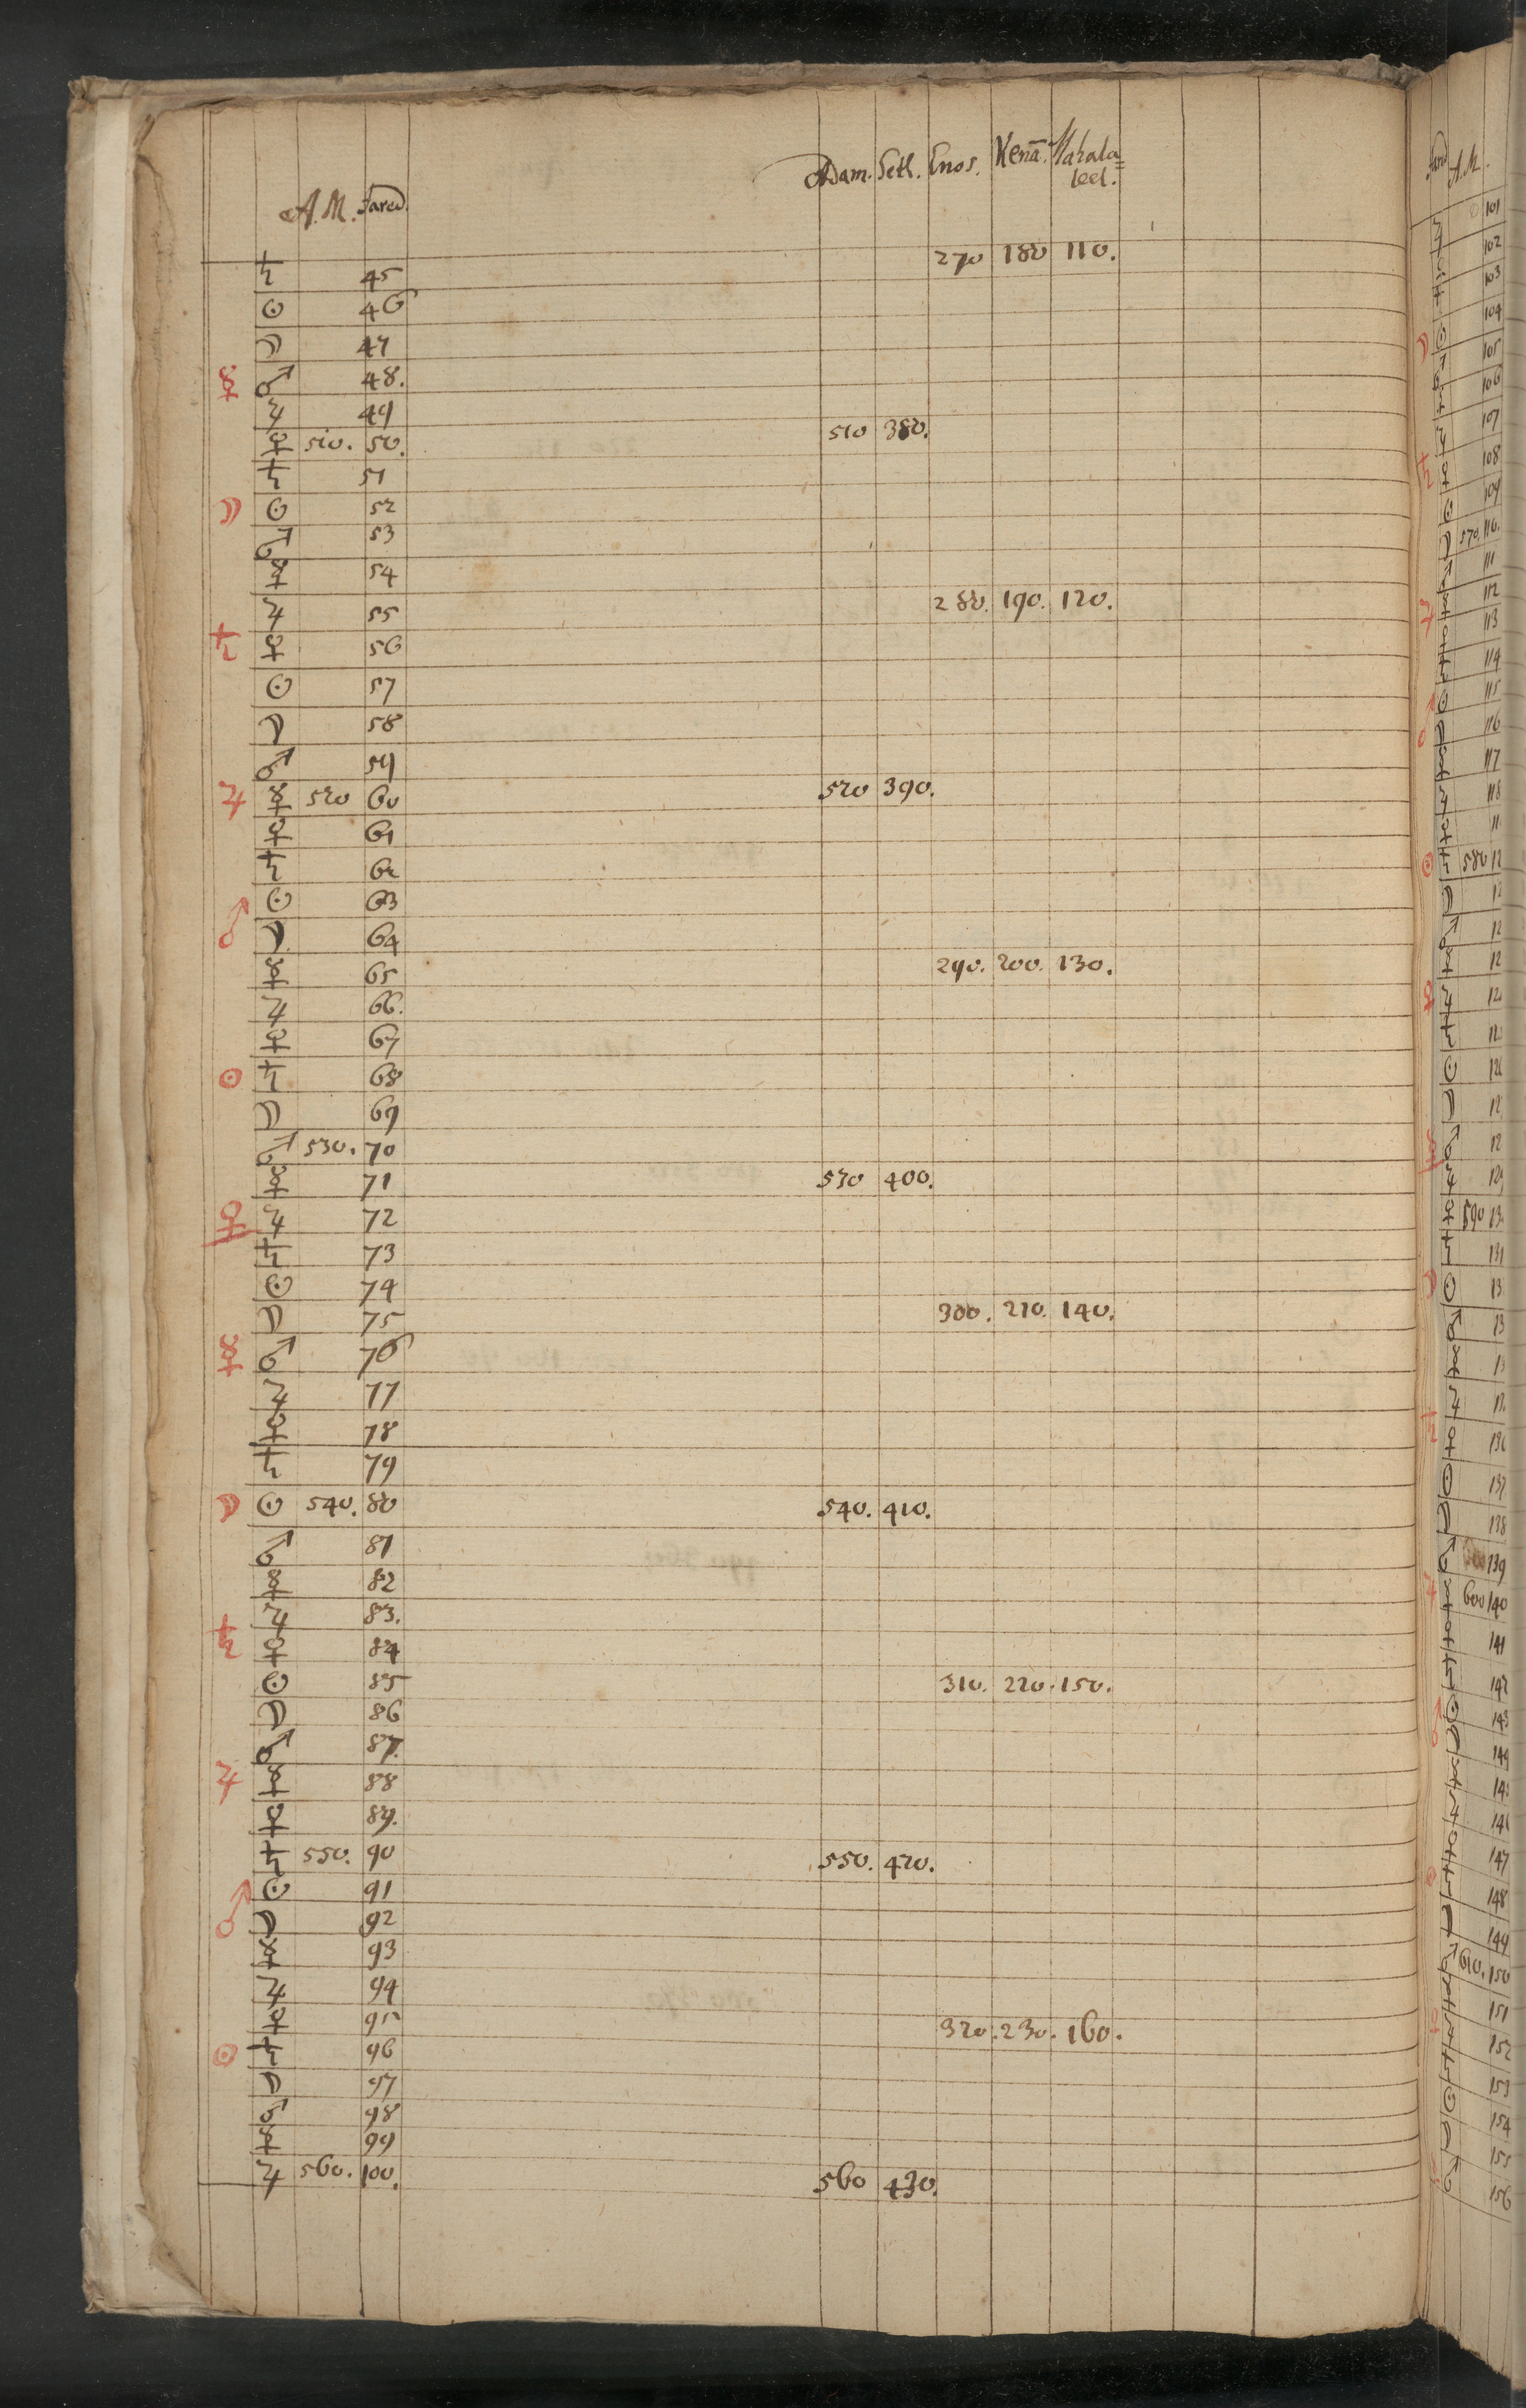 A.M. Jared. Adam. Seth. Enos. Kenā. Mahala=
leel.
♄ 45 270 180 110.
☉ 46
☽ 47
☿ ♂ 48.
♃ 49
♀ 510. 50. 510 380.
♄ 51
☽ ☉ 52
♂ 53
☿ 54
♃ 55 280. 190. 120.
♄ ♀ 56
☉ 57
☽ 58
♂ 59
♃ ☿ 520 60 520 390.
♀ 61
♄ 62
☉ 63
♂ ☽ 64
☿ 65 290. 200. 130.
♃ 66.
♀ 67
☉ ♄ 68
☽ 69
♂ 530. 70
☿ 71 530 400.
♀ ♃ 72
♄ 73
☉ 74
☽ 75 300. 210. 140.
☿ ♂ 76
♃ 77
♀ 78
♄ 79
☽ ☉ 540. 80 540. 410.
♂ 81
☿ 82
♃ 83.
♄ ♀ 84
☉ 85 310. 220. 150.
☽ 86
♂ 87.
♃ ☿ 88
♀ 89.
♄ 550. 90 550. 420.
☉ 91
♂ ☽ 92
☿ 93
♃ 94
♀ 95 320. 230. 160.
☉ ♄ 96
☽ 97
♂ 98
☿ 99
♃ 560. 100. 560 430.
A.M.
101
102
103
104
105
106
107
108
109
570. 110.
111
112
113
114
115
116
117
118
580
590
131
138
139
600 140
141
142
143
144
147
148
149
610. 150
151
152
153
154
155
156